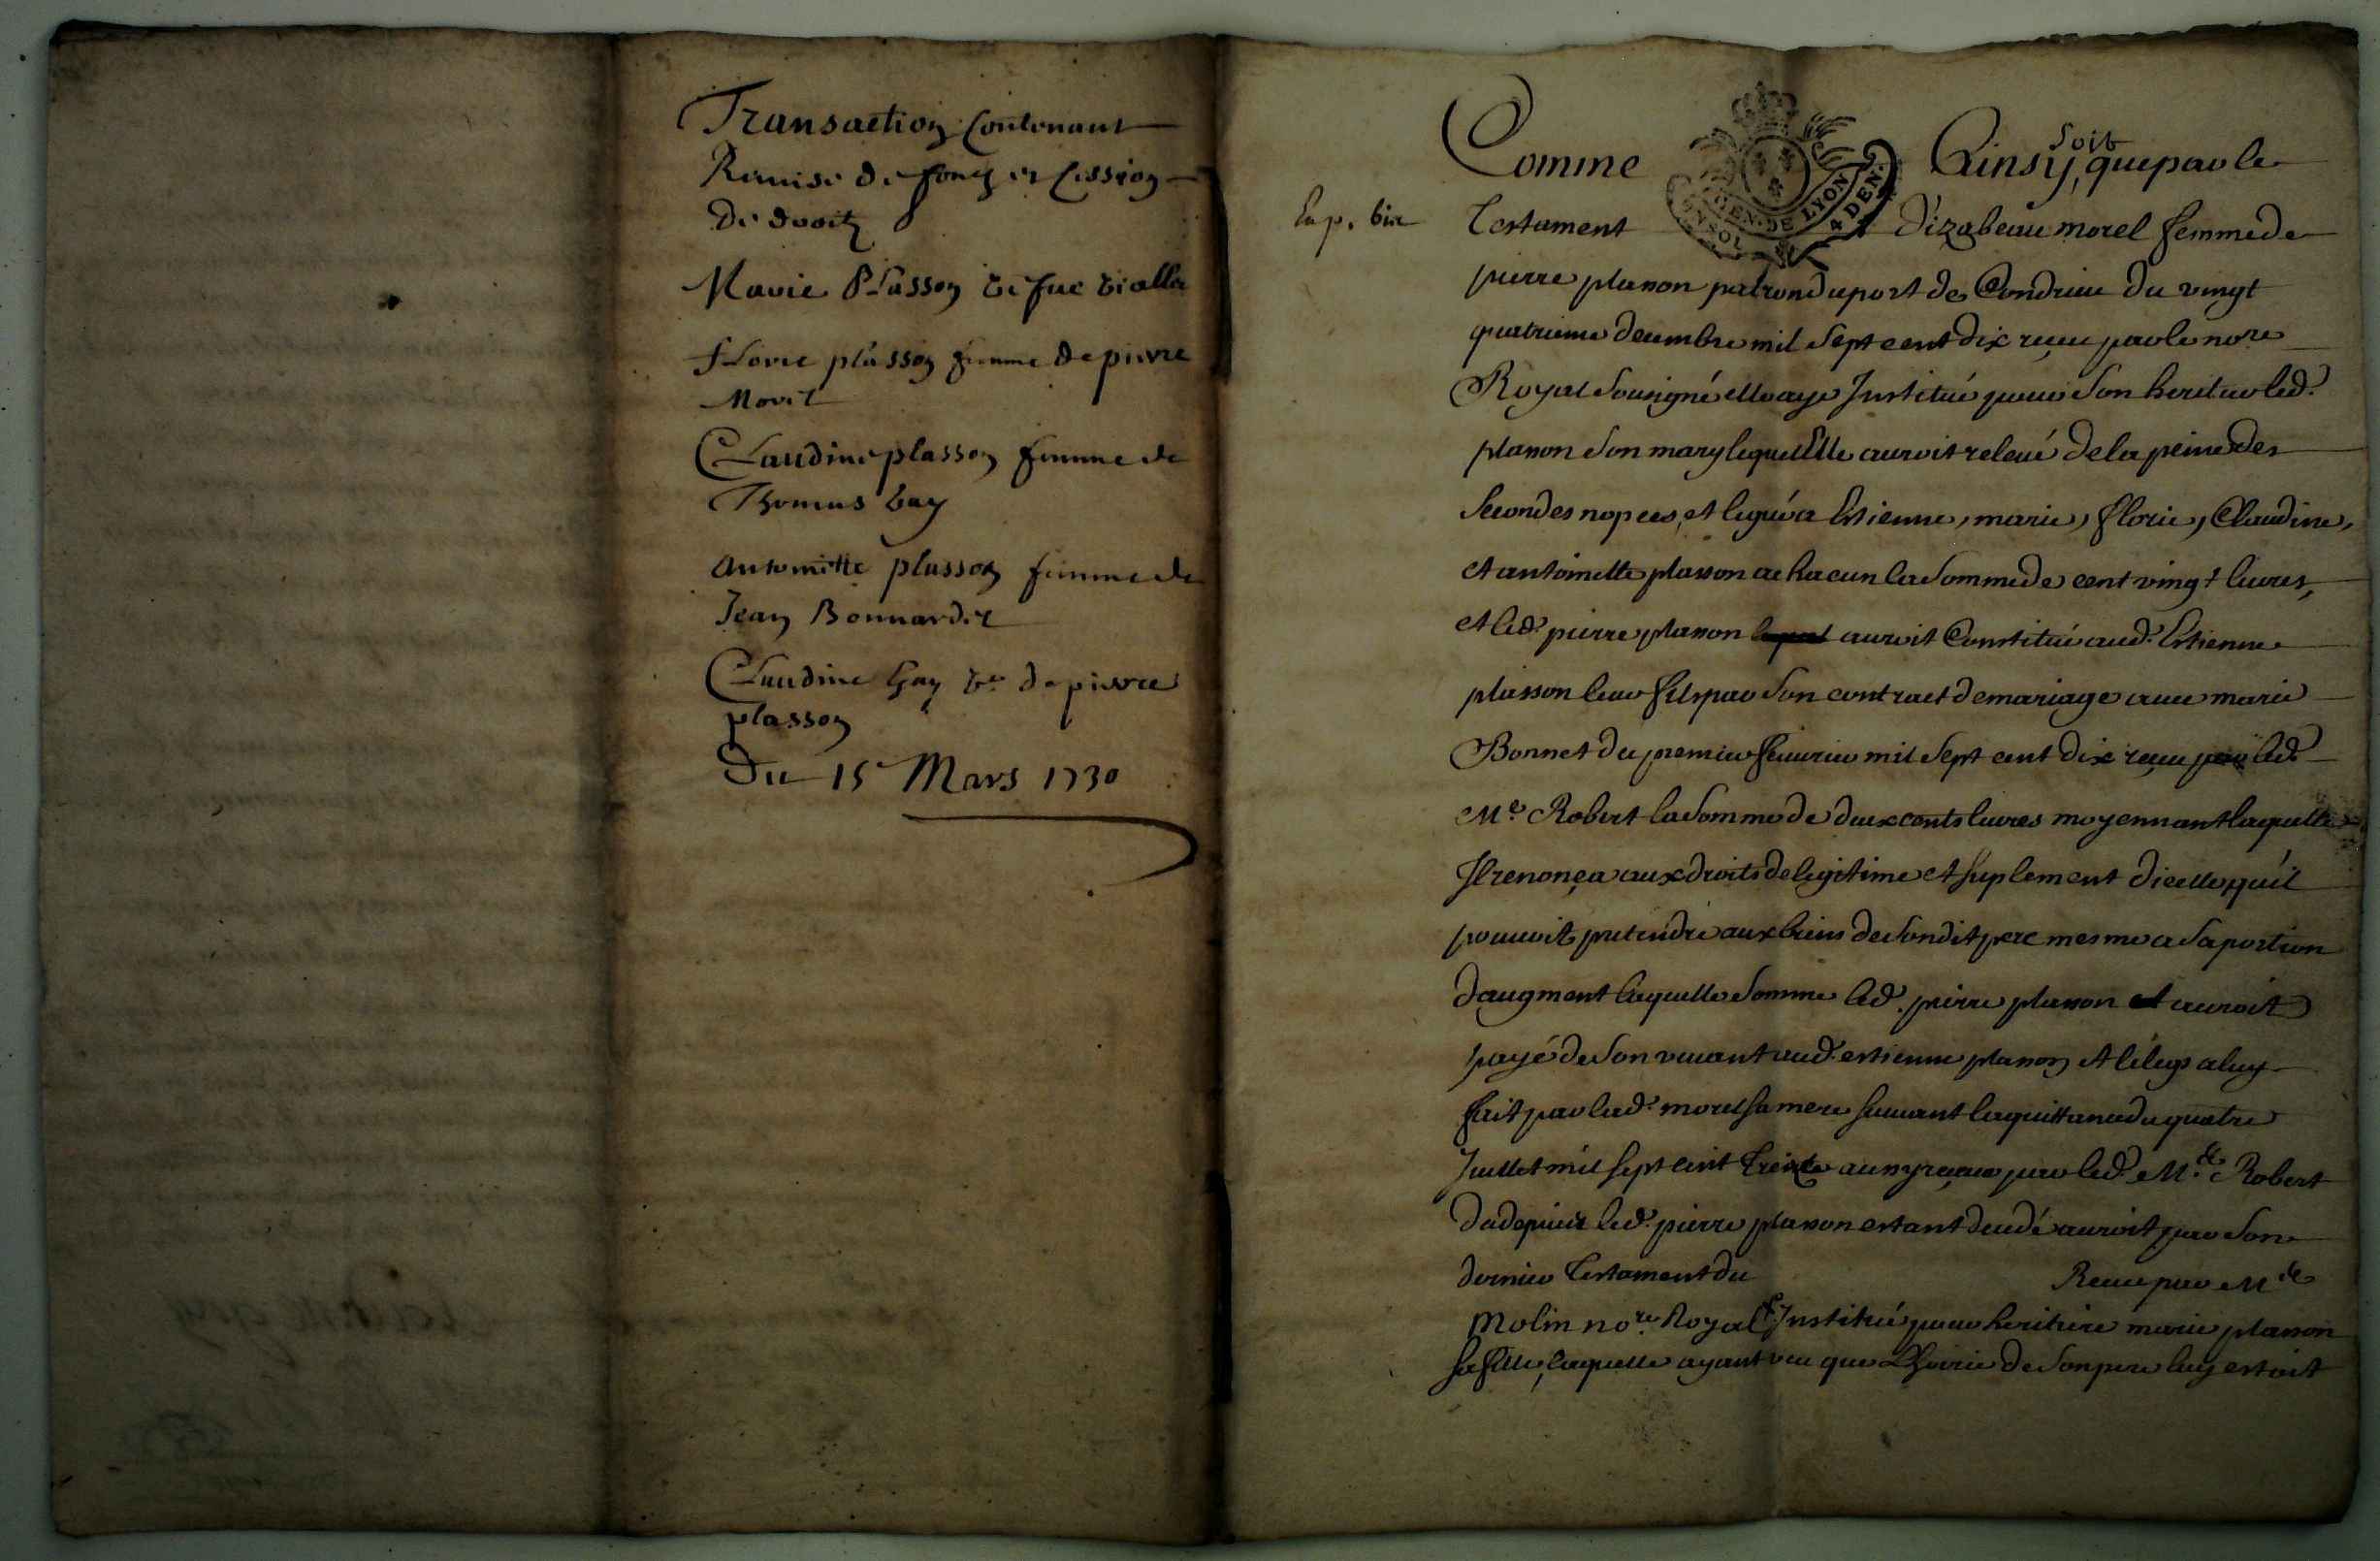 Transaction Contenant
Remise de fond et Cession
de droit
Marie Plasson ve Luc Vialla
Florie plasson femme de pierre
Morel
Claudine plasson femme de
Thomas bay
antoinette plasson femme de
Jean Bonnardet
Claudine Gay ve de pierre
plasson
Du 15 Mars 1730
Comme Ainsy soit, que par le
GEN. DE LYON
4 DEN.
Exp. bis
Testament d'izabeau morel femme de
pierre plasson patron du port de Condrieu du vingt
quatrieme decembre mil sept cent dix reçeu par le nore
Royal Sousigné elle aye Institué pour son heritier led.
plasson son mary lequel Elle auroit relevé de la peine des
secondes nopces, et legué a Estienne, marie, florie, Claudine,
et antoinette plasson a chacun la somme de cent vingt livres,
et led. pierre plasson auroit Constitué aud. Estienne
plasson leur fils par son contract de mariage avec marie
Bonnet du premier fevrier mil sept cent dix reçeu par led.
Me. Robert la somme de deux cents livres moyennant laquelle
Il renonça aux droits de legitime et suplement d'icelle qu'il
pouvoit pretendre aux biens de sondit pere mesme a sa portion
d'augment laquelle somme led. pierre plasson auroit
payé de son vivant aud. estienne plasson et le legs a luy
fait par lad. morel sa mere suivant la quittance du quatre
Juillet mil sept cent treize aussy reçeue par led. Me. Robert
du depuis led. pierre plasson estant decedé auroit par son
dernier Testament du Receu par Me
Molin nore. Royal Institué pour heritiere marie plasson
sa fille, laquelle ayant veu que L'hoirie de son pere luy estoit